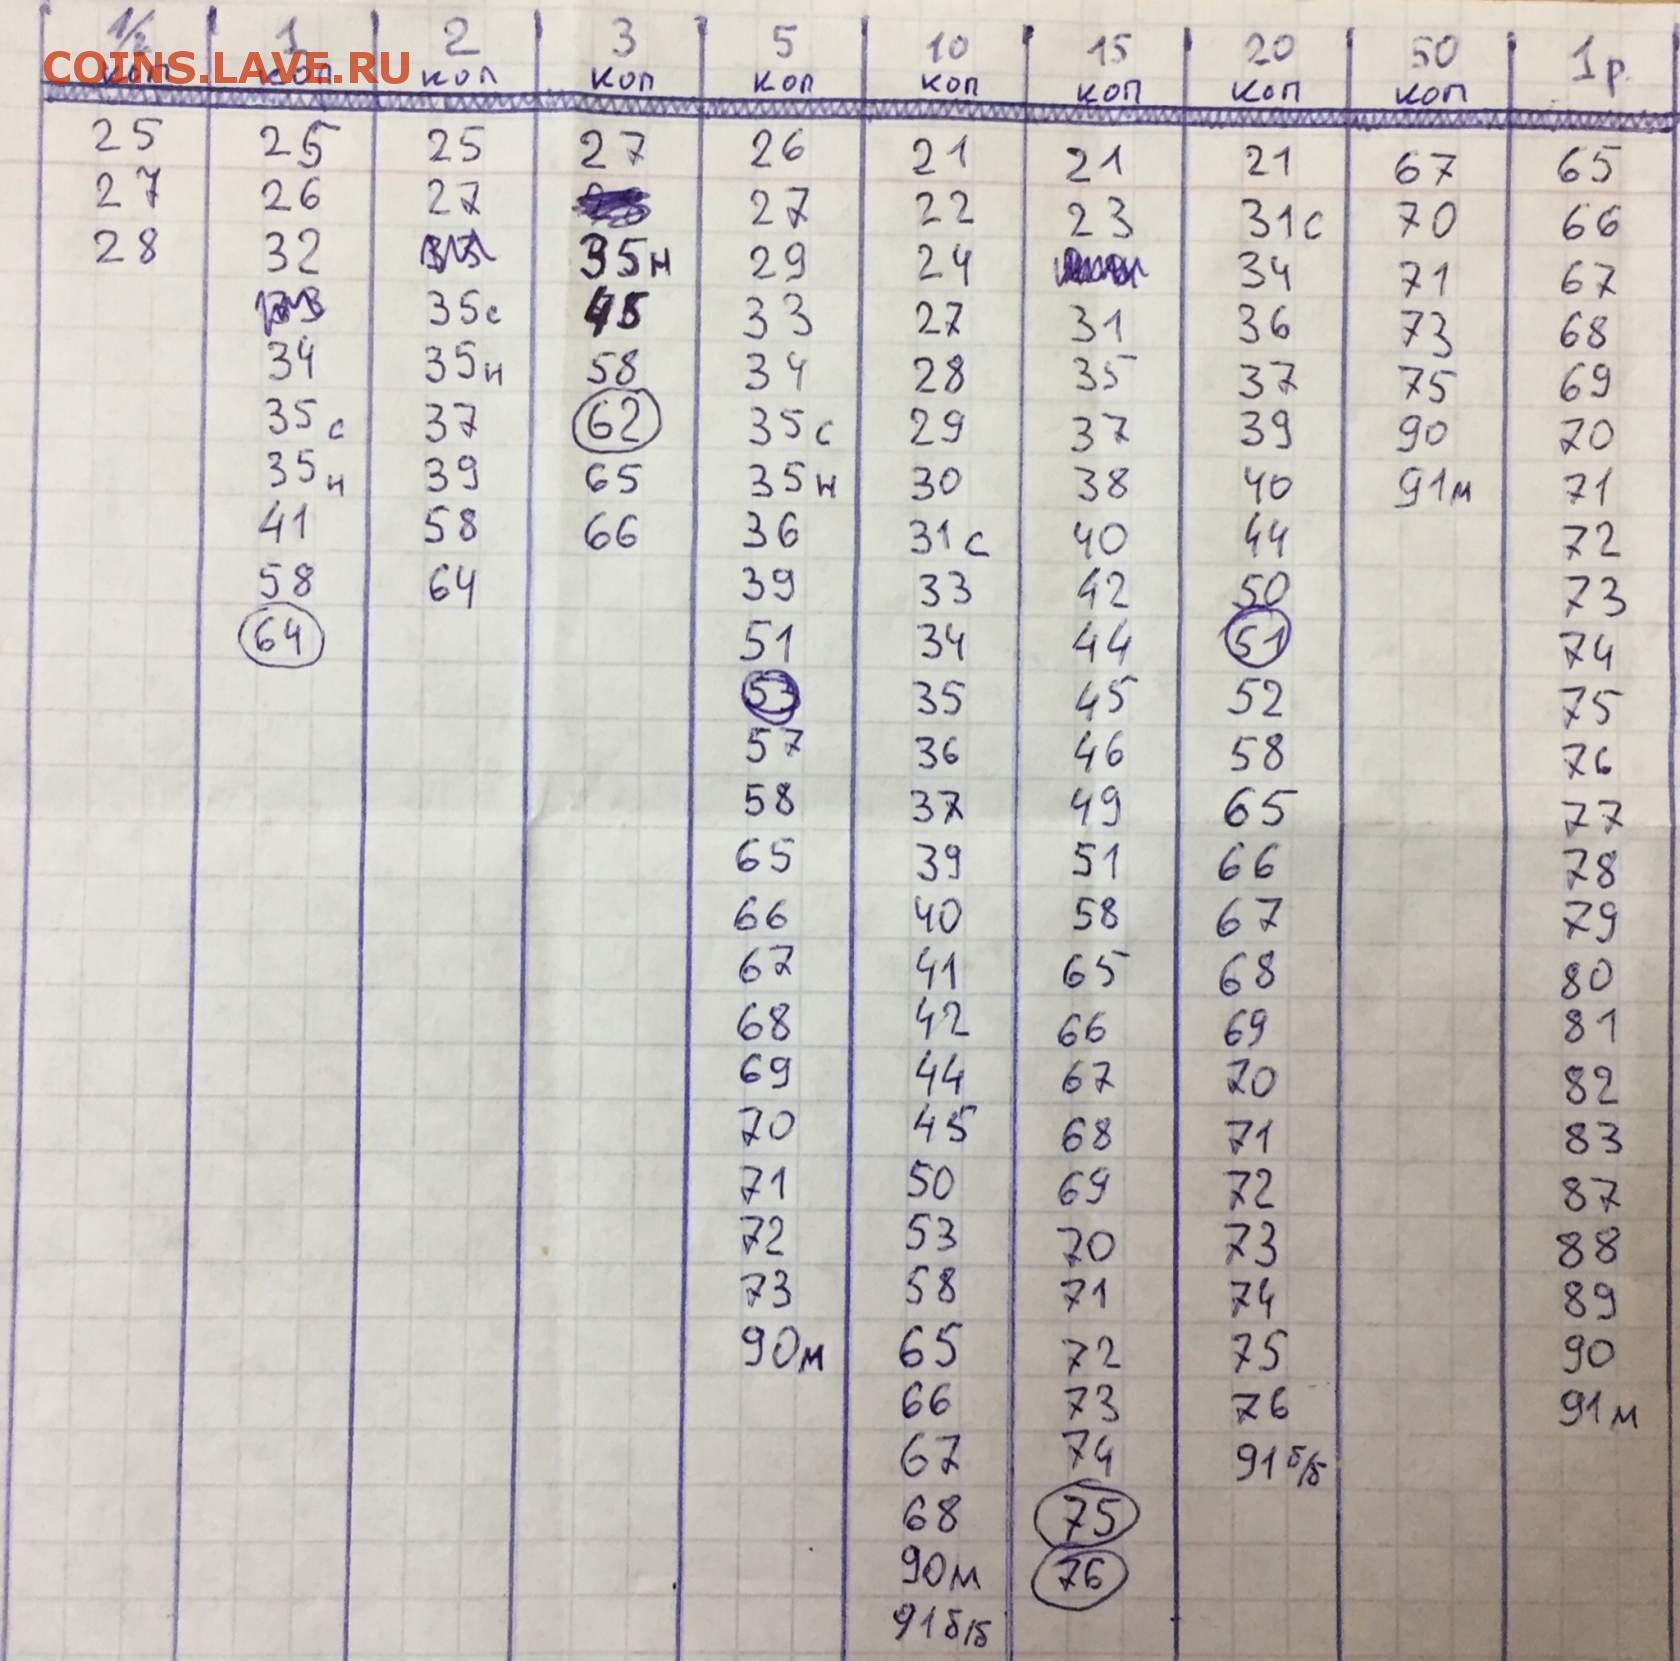 COINS.LAVE.RU
1/2 1 2 3 5 10 15 20 50 1р.
коп коп коп коп коп коп коп коп коп
25 25 25 27 26 21 21 21 67 65
27 26 27 27 22 23 31с 70 66
28 32 35н 29 24 34 71 67
35с 45 33 27 31 36 73 68
34 35н 58 34 28 35 37 75 69
35с 37 62 35с 29 37 39 90 70
35н 39 65 35н 30 38 40 91м 71
41 58 66 36 31с 40 44 72
58 64 39 33 42 50 73
64 51 34 44 51 74
53 35 45 52 75
57 36 46 58 76
58 37 49 65 77
65 39 51 66 78
66 40 58 67 79
67 41 65 68 80
68 42 66 69 81
69 44 67 70 82
70 45 68 71 83
71 50 69 72 87
72 53 70 73 88
73 58 71 74 89
90м 65 72 75 90
66 73 76 91м
67 74 91 б/б
68 75
90м 76
91 б/б